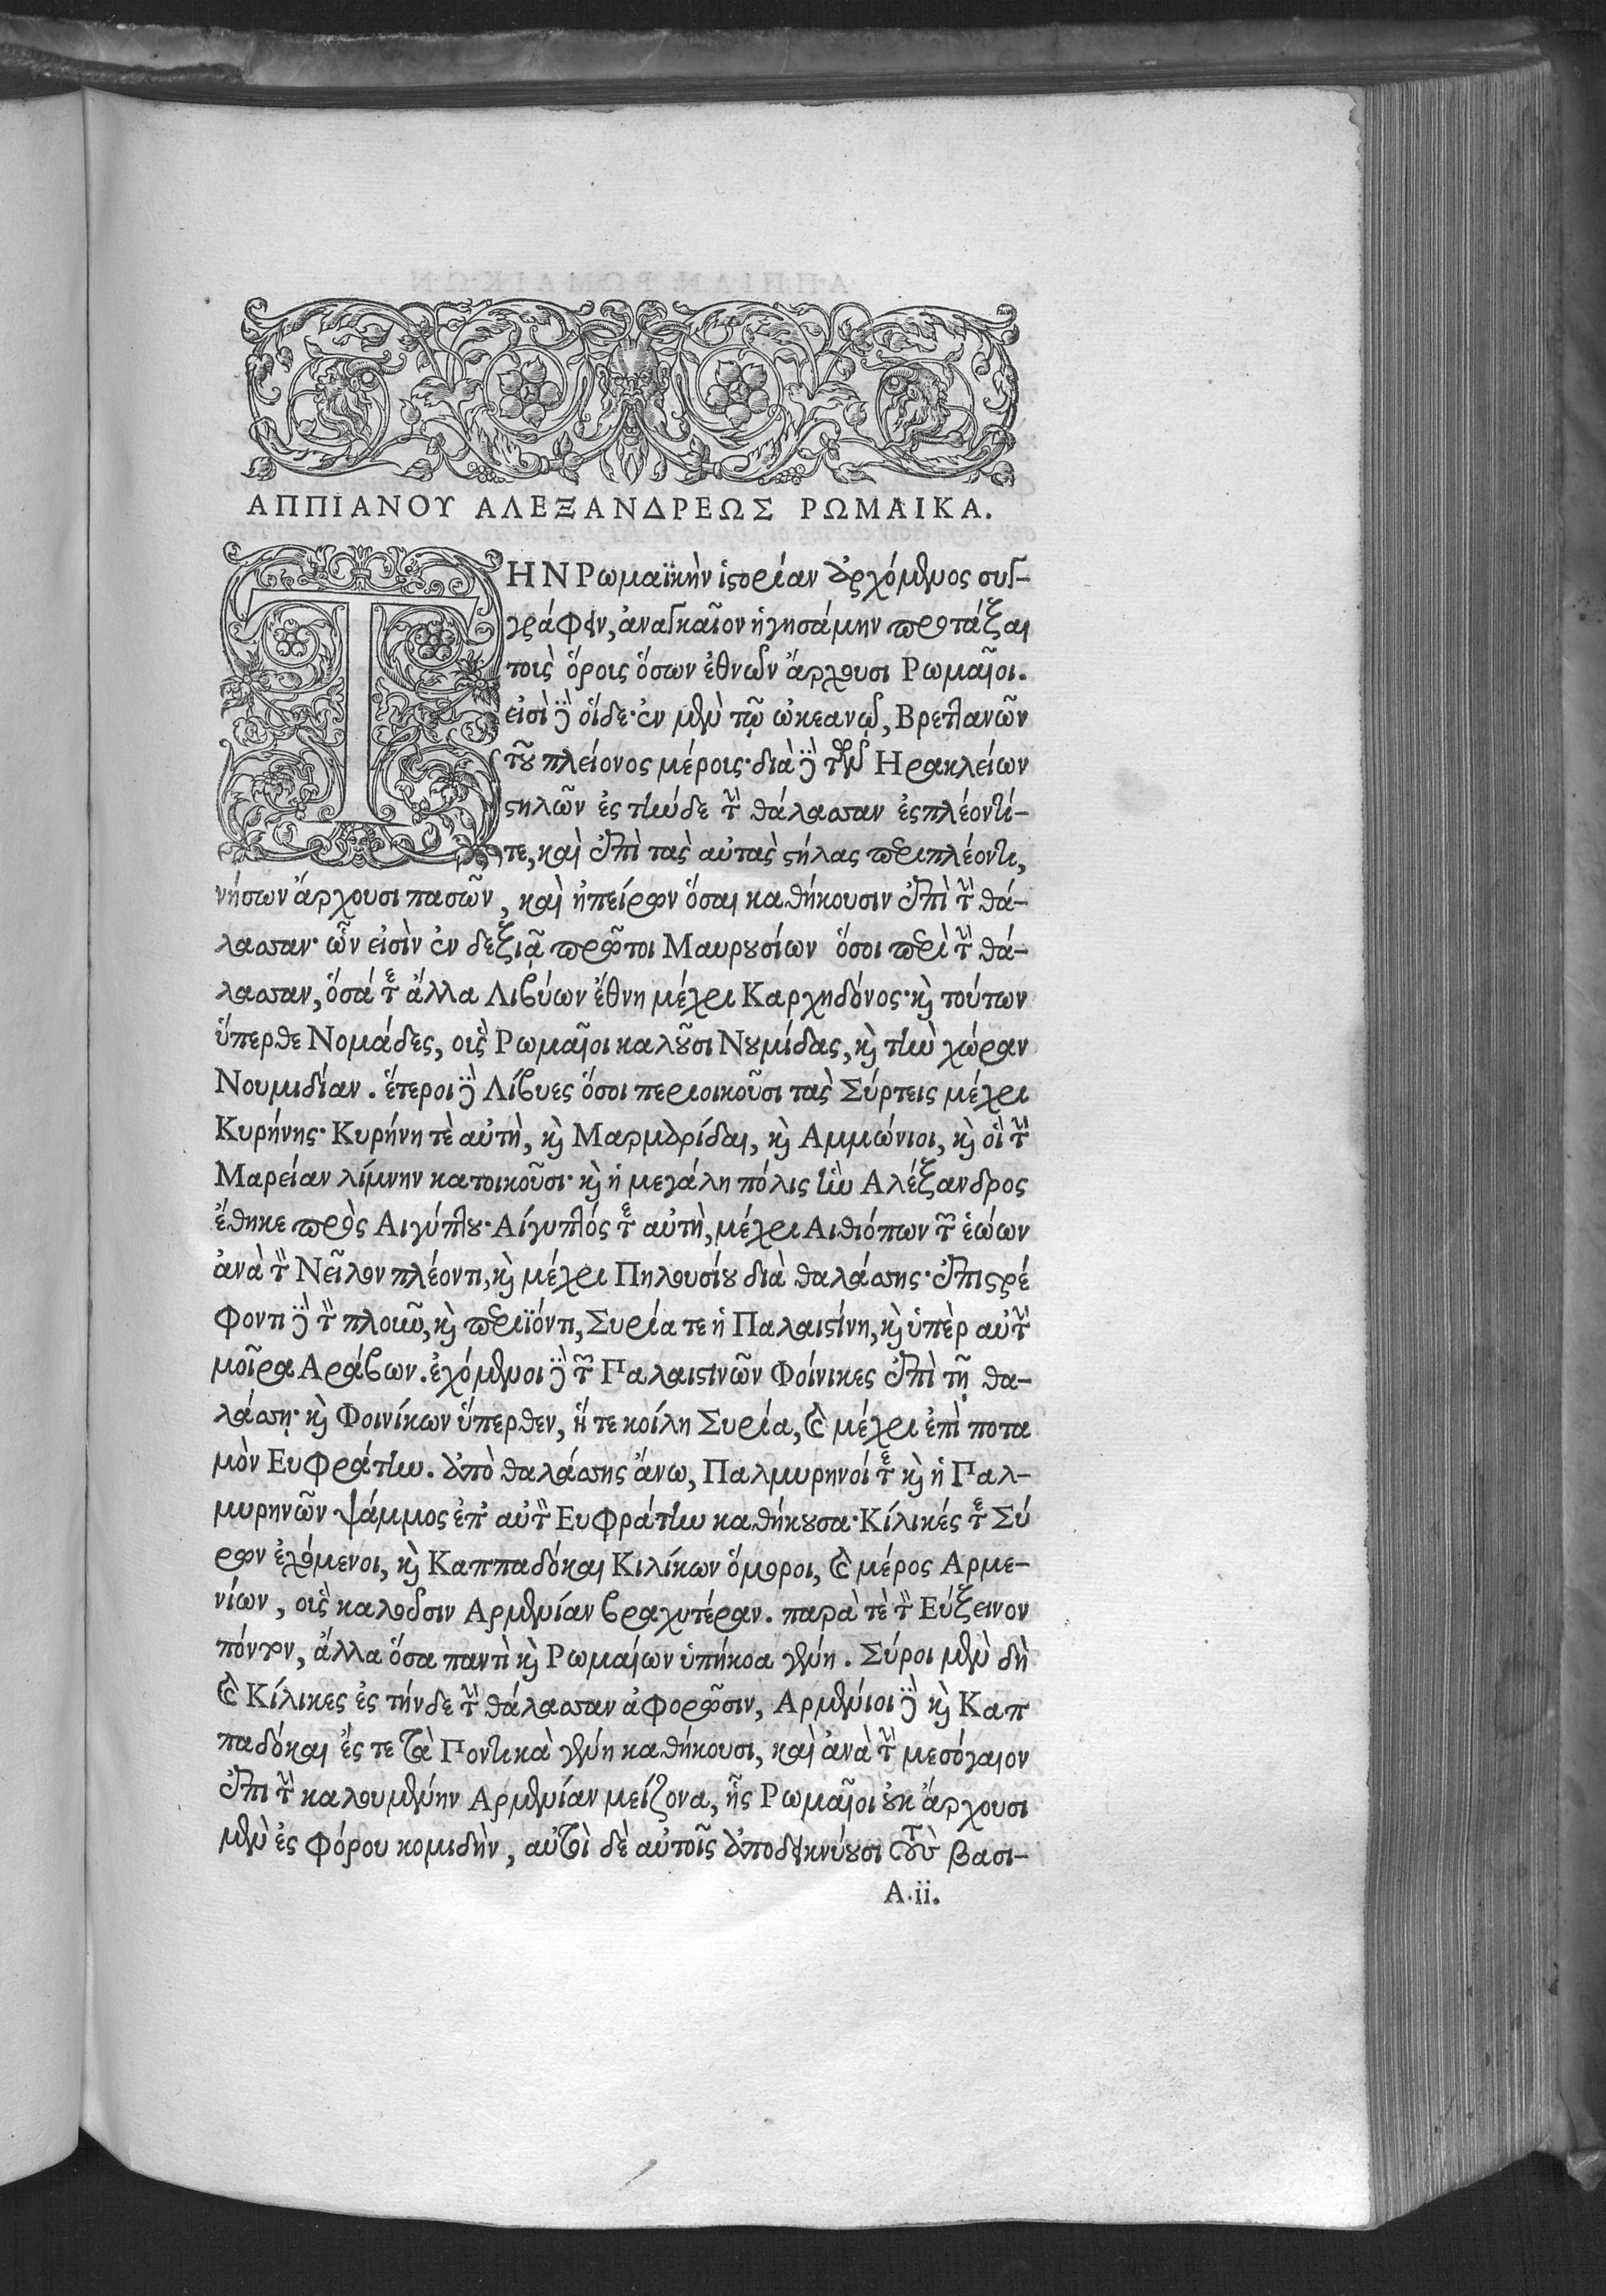 ΑΠΠΙΑΝΟΥ ΑΛΕΞΑΝΔΡΕΩΣ ΡΩΜΑΙΚΑ.
ΤΗΝ Ρωμαϊκὴν ἱστορίαν ἀρχόμενος συγ-
γράφειν, ἀναγκαῖον ἡγησάμην προτάξαι
τοὺς ὅρους ὅσων ἐθνῶν ἄρχουσι Ρωμαῖοι.
εἰσὶ δὲ οἵδε· ἐν μὲν τῷ ὠκεανῷ, Βρετλανῶν
τοῦ πλείονος μέρους· διὰ δὲ τῶν Ηρακλείων
στηλῶν ἐς τήνδε τὴν θάλασσαν ἐσπλέοντί-
τε, καὶ ἐπὶ τὰς αὐτὰς στήλας περιπλέοντι,
νήσων ἄρχουσι πασῶν, καὶ ἠπείρων ὅσαι καθήκουσιν ἐπὶ τὴν θά-
λασσαν· ὧν εἰσὶν ἐν δεξιᾷ πρῶτοι Μαυρουσίων ὅσοι περὶ τὴν θά-
λασσαν, ὅσά τε ἄλλα Λιβύων ἔθνη μέχρι Καρχηδόνος· καὶ τούτων
ὕπερθε Νομάδες, οὓς Ρωμαῖοι καλοῦσι Νουμίδας, καὶ τὴν χώραν
Νουμιδίαν. ἕτεροι δὲ Λίβυες ὅσοι περιοικοῦσι τὰς Σύρτεις μέχρι
Κυρήνης· Κυρήνη τὲ αὐτὴ, καὶ Μαρμαρίδαι, καὶ Αμμώνιοι, καὶ οἳ τὴν
Μαρείαν λίμνην κατοικοῦσι· καὶ ἡ μεγάλη πόλις ἣν Αλέξανδρος
ἔθηκε πρὸς Αιγύπτου· Αίγυπτός τε αὐτὴ, μέχρι Αιθιόπων τῶν ἑώων
ἀνὰ τὸν Νεῖλον πλέοντι, καὶ μέχρι Πηλουσίου διὰ θαλάσσης· ἐπιστρέ
φοντι δὲ τὸν πλοῦν, καὶ περιϊόντι, Συρία τε ἡ Παλαιστίνη, καὶ ὑπὲρ αὐτὴν
μοῖρα Αράβων. ἐχόμενοι δὲ τῶν Παλαιστινῶν Φοίνικες ἐπὶ τῇ θα-
λάσσῃ· καὶ Φοινίκων ὕπερθεν, ἥ τε κοίλη Συρία, καὶ μέχρι ἐπὶ ποτα
μὸν Ευφράτην. ἀπὸ θαλάσσης ἄνω, Παλμυρηνοί τε καὶ ἡ Παλ-
μυρηνῶν ψάμμος ἐπ' αὐτὸν Ευφράτην καθήκουσα· Κίλικές τε Σύ
ρων ἐχόμενοι, καὶ Καππαδόκαι Κιλίκων ὅμοροι, καὶ μέρος Αρμε-
νίων, οὓς καλοῦσιν Αρμενίαν βραχυτέραν. παρὰ τὲ τὸν Εύξεινον
πόντον, ἄλλα ὅσα παντὶ καὶ Ρωμαίων ὑπήκοα γένη. Σύροι μὲν δὴ
καὶ Κίλικες ἐς τήνδε τὴν θάλασσαν ἀφορῶσιν, Αρμένιοι δὲ καὶ Καπ
παδόκαι ἔς τε τὰ Ποντικὰ γένη καθήκουσι, καὶ ἀνὰ τὴν μεσόγαιον
ἐπὶ τὴν καλουμένην Αρμενίαν μείζονα, ἧς Ρωμαῖοι οὐκ ἄρχουσι
μὲν ἐς φόρου κομιδὴν, αὐτοὶ δὲ αὐτοῖς ἀποδεικνύουσι τοὺς βασι-
A.ii.